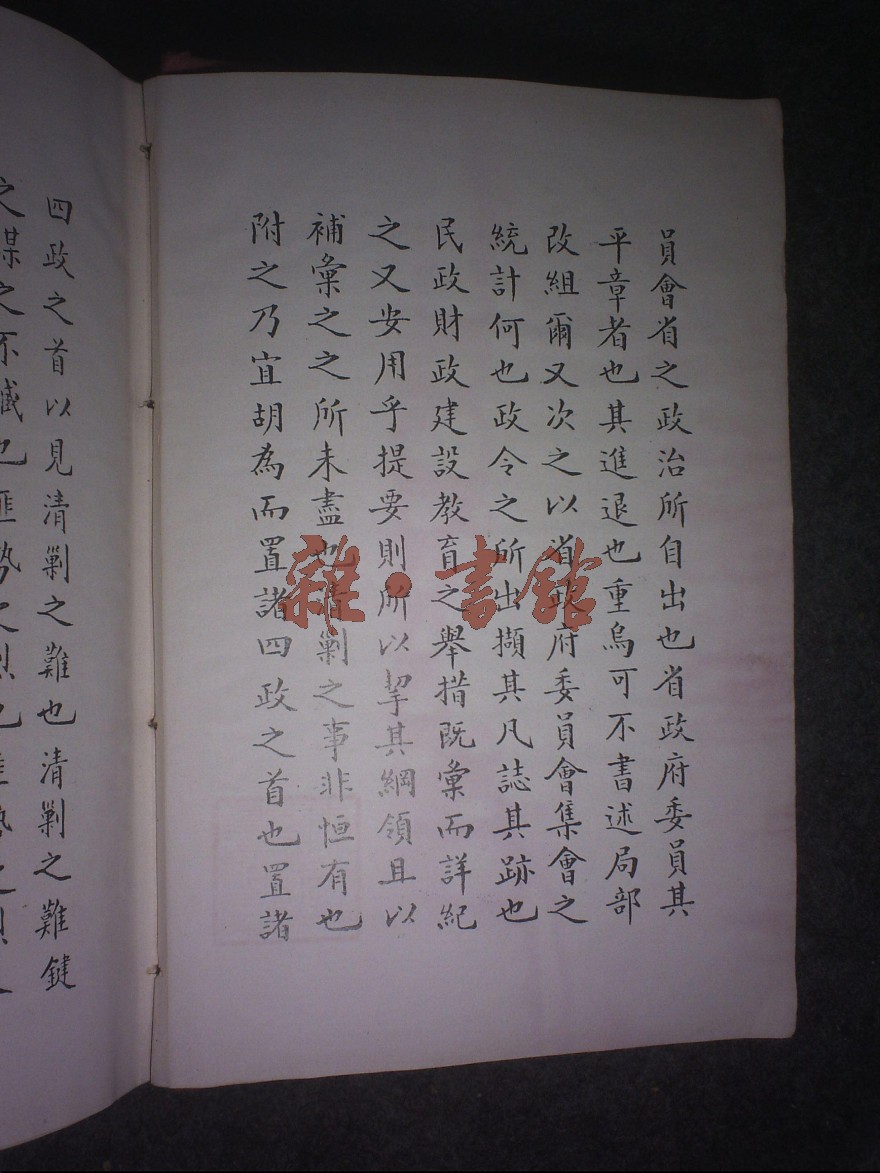 員會省之政治所自出也省政府委員其
平章者也其進退也重烏可不書述局部
改組爾又次之以省政府委員會集會之
統計何也政令之所出擷其凡誌其跡也
民政財政建設教育之舉措既彙而詳紀
之又安用乎提要則所以挈其綱領且以
補彙之之所未盡也清剿之事非恒有也
附之乃宜胡為而置諸四政之首也置諸
四政之首以見清剿之難也清剿之難鍵
雜·書館